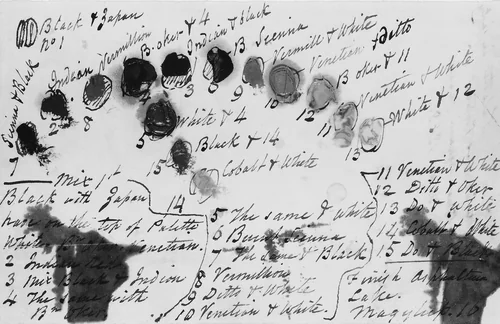 Black & Japan
No 1
Sienna & Black
Indian
Vermillion
Boker & 4
Indian & Black
B Sienna
Vermill & White
Venetian Ditto
Boker & 11
Venetian & White
White & 12
7
2
8
4
3
8
9
10
12
11
13
White & 4
5
Black & 14
15
Cobalt & White
14
Mix 1st
Black with Japan
have on the top of Palette
2 Indian
3 Mix Black & Indian
4 The Same with
Bn Oker.
5 The same & White
6 Burnt Sienna
7 The Same & Black
8 Vermillion
9 Ditto & White
10 Venetian & White.
11 Venetian & White
12 Ditto & Oker
13 Do & White
14 Cobalt & White
15 Do & Black
Finish
Lake.